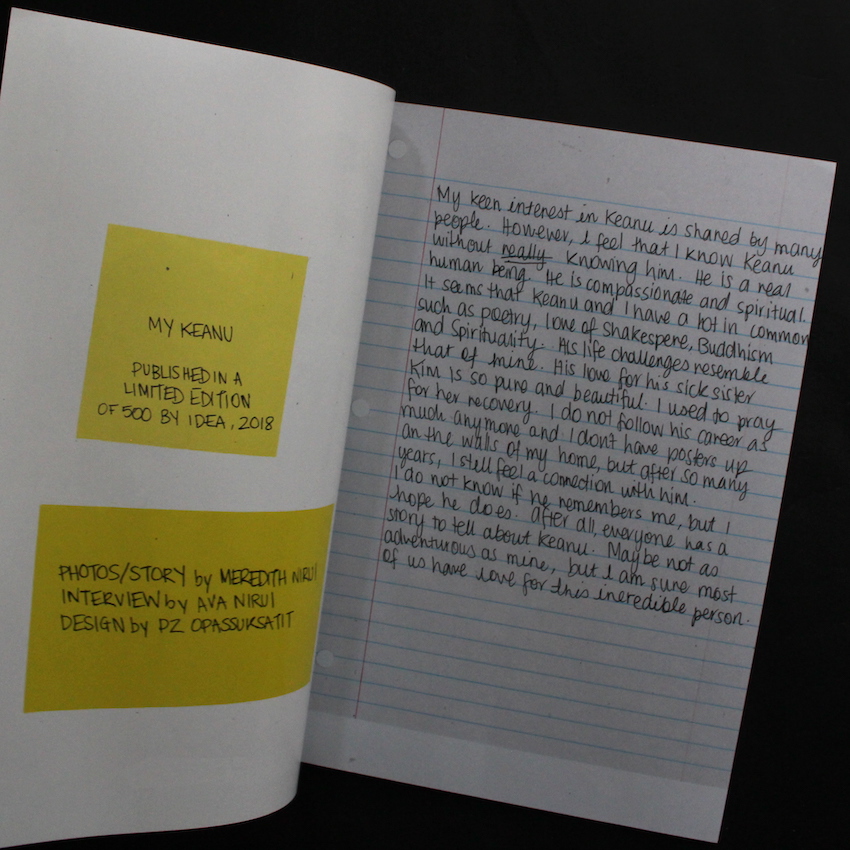 MY KEANU
PUBLISHED IN A
LIMITED EDITION
OF 500 BY IDEA, 2018
PHOTOS/STORY by MEREDITH NIRUI
INTERVIEW by AVA NIRUI
DESIGN by PZ OPASSUKSATIT
My keen interest in Keanu is shared by many
people. However, I feel that I know Keanu
without really knowing him. He is a real
human being. He is compassionate and spiritual.
It seems that Keanu and I have a lot in common
such as poetry, love of Shakespere, Buddhism
and Spirituality. His life challenges resemble
that of mine. His love for his sick sister
Kim is so pure and beautiful. I used to pray
for her recovery. I do not follow his career as
much anymore and I dont have posters up
on the walls of my home, but after so many
years, I still feel a connection with him.
I do not know if he remembers me, but I
hope he does. After all, everyone has a
story to tell about Keanu. Maybe not as
adventurous as mine, but I am sure most
of us have love for this incredible person.